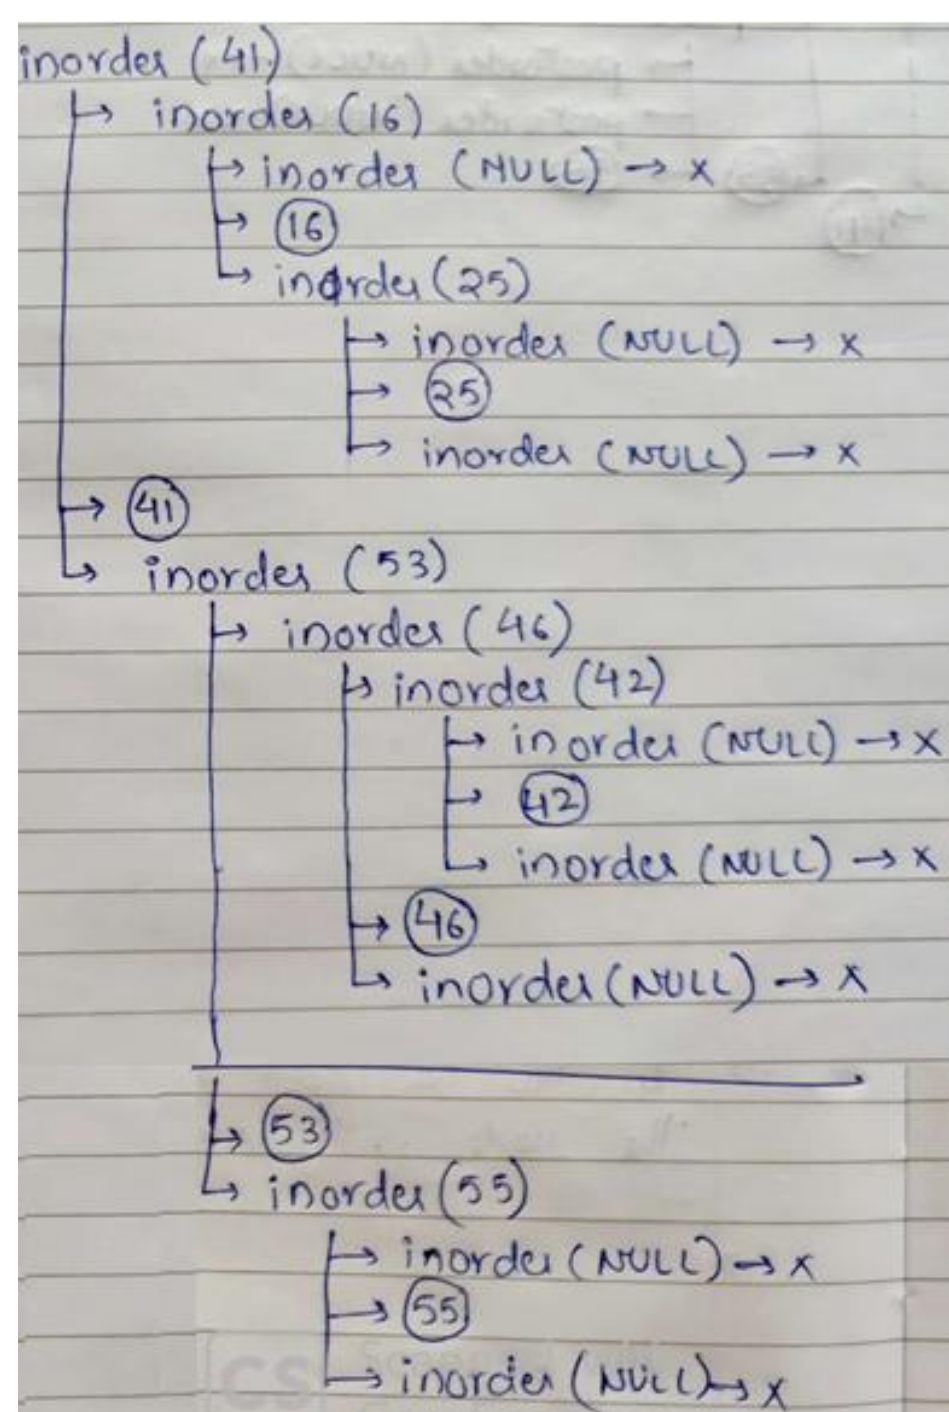 inorder (41)
↳ inorder (16)
↳ inorder (NULL) → x
↳ 16
↳ inorder (25)
↳ inorder (NULL) → x
↳ 25
↳ inorder (NULL) → x
↳ 41
↳ inorder (53)
↳ inorder (46)
↳ inorder (42)
↳ inorder (NULL) → x
↳ 42
↳ inorder (NULL) → x
↳ 46
↳ inorder (NULL) → x
↳ 53
↳ inorder (55)
↳ inorder (NULL) → x
↳ 55
↳ inorder (NULL) → x